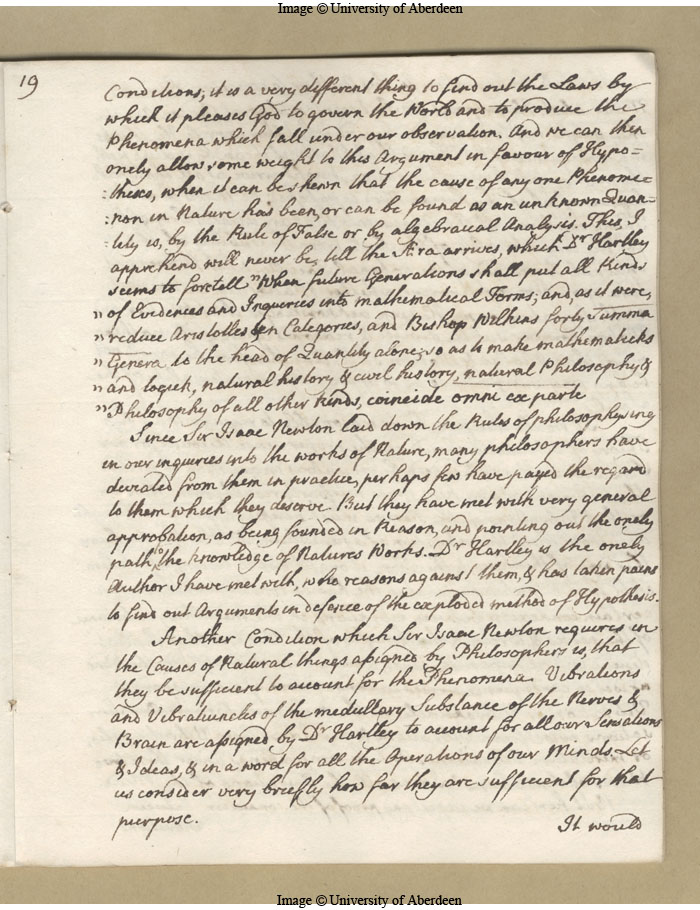 Image © University of Aberdeen
19
Conditions; it is a very different thing to find out the Laws by
which it pleases God to govern the World and to produce the
Phenomena which fall under our observation. And we can then
onely allow some weight to this Argument in favour of Hypo=
:theses, when it can be shewn that the cause of any one Phenome=
:non in Nature has been, or can be found as an unknown Quan-
:tity is, by the Rule of False or by algebraical Analysis. This, I
apprehend will never be, till the Æra arrives, which Dr Hartley
seems to foretell "When future Generations shall put all Kinds
" of Evidences and Inqueries into mathematical Forms; and, as it were,
" reduce Aristotles ten Categories, and Bishop Wilkins forty Summa
" Genera to the head of Quantity alone, so as to make mathematicks
" and logick, natural history & civil history, natural Philosophy &
" Philosophy of all other kinds, coincide omni ex parte
Since Sir Isaac Newton laid down the Rules of philosophysing
in our inquiries into the works of Nature, many philosophers have
deviated from them in practice, perhaps few have payed the regard
to them which they deserve. But they have met with very general
approbation, as being founded in Reason, and pointing out the onely
path to the knowledge of Natures Works. Dr Hartley is the onely
Author I have met with, who reasons against them, & has taken pains
to find out Arguments in defence of the exploded method of Hypothesis.
Another Condition which Sir Isaac Newton requires in
the Causes of Natural things assigned by Philosophers is, that
they be sufficient to account for the Phenomena. Vibrations
and Vibratiuncles of the medullary Substance of the Nerves &
Brain are assigned by Dr Hartley to account for all our Sensations
& Ideas, & in a word for all the Operations of our Minds. Let
us consider very briefly how far they are sufficient for that
purpose.
It would
Image © University of Aberdeen